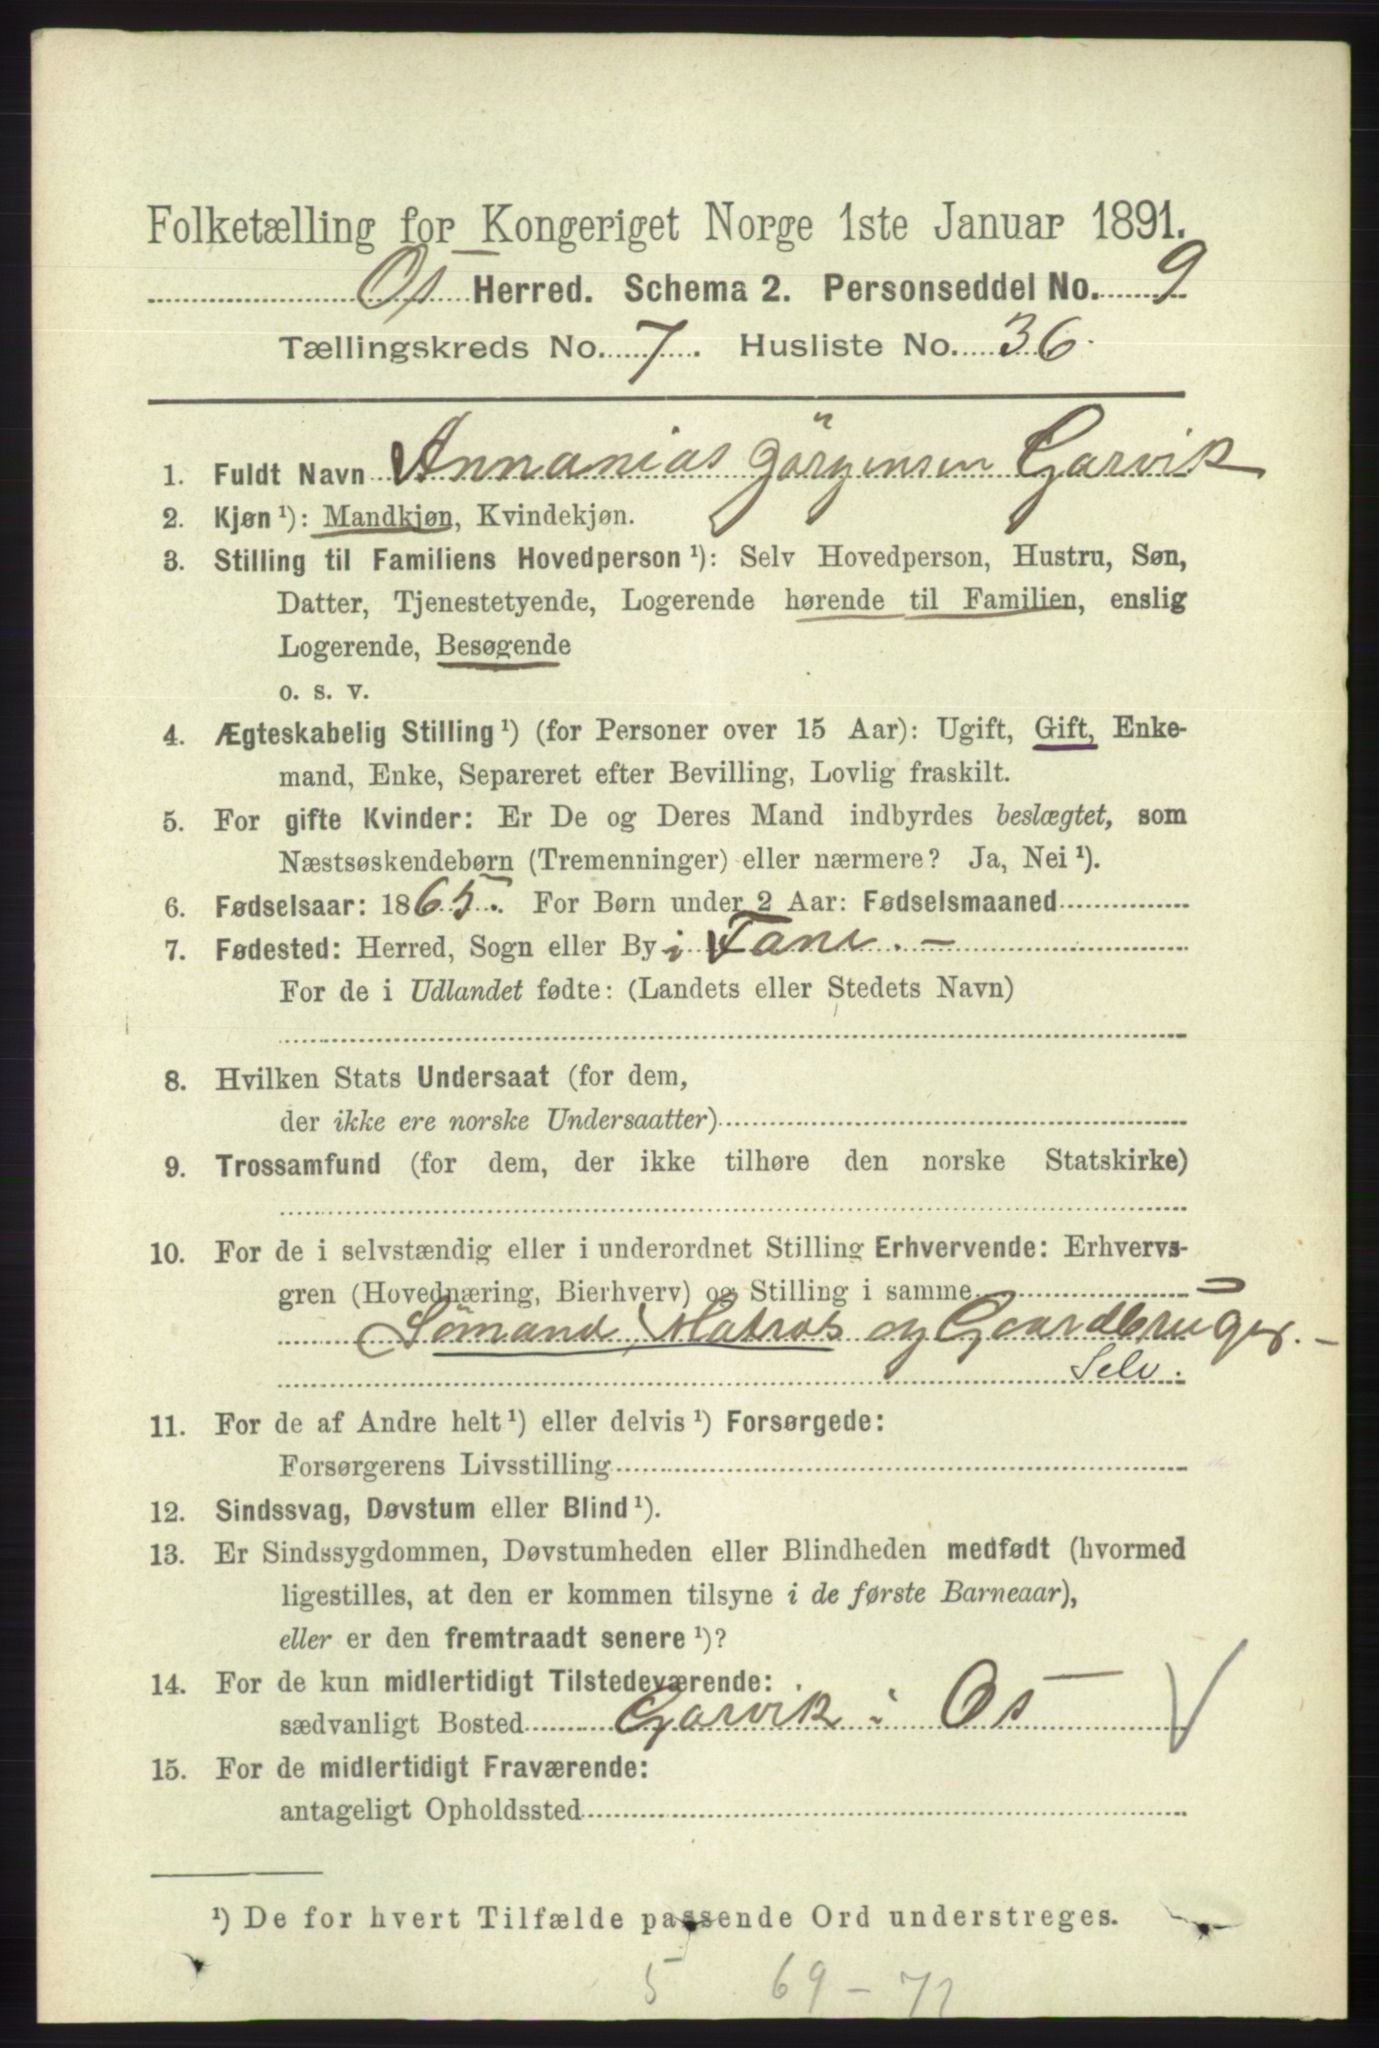 Folketælling for Kongeriget Norge 1ste Januar 1891.
Os Herred. Schema 2. Personseddel No. 9
Tællingskreds No. 7. Husliste No. 36.
1. Fuldt Navn Annanias Jörgensen Garvik
2. Kjøn ¹): Mandkjøn, Kvindekjøn.
3. Stilling til Familiens Hovedperson ¹): Selv Hovedperson, Hustru, Søn,
Datter, Tjenestetyende, Logerende hørende til Familien, enslig
Logerende, Besøgende
o. s. v.
4. Ægteskabelig Stilling ¹) (for Personer over 15 Aar): Ugift, Gift, Enke-
mand, Enke, Separeret efter Bevilling, Lovlig fraskilt.
5. For gifte Kvinder: Er De og Deres Mand indbyrdes beslægtet, som
Næstsøskendebørn (Tremenninger) eller nærmere? Ja, Nei ¹).
6. Fødselsaar: 1865. For Børn under 2 Aar: Fødselsmaaned
7. Fødested: Herred, Sogn eller By i Fane. -
For de i Udlandet fødte: (Landets eller Stedets Navn)
8. Hvilken Stats Undersaat (for dem,
der ikke ere norske Undersaatter)
9. Trossamfund (for dem, der ikke tilhøre den norske Statskirke)
10. For de i selvstændig eller i underordnet Stilling Erhvervende: Erhvervs-
gren (Hovednæring, Bierhverv) og Stilling i samme
Sömand, Matros og Gaardbruger. -
Selv.
11. For de af Andre helt ¹) eller delvis ¹) Forsørgede:
Forsørgerens Livsstilling
12. Sindssvag, Døvstum eller Blind ¹).
13. Er Sindssygdommen, Døvstumheden eller Blindheden medfødt (hvormed
ligestilles, at den er kommen tilsyne i de første Barneaar),
eller er den fremtraadt senere ¹)?
14. For de kun midlertidigt Tilstedeværende:
sædvanligt Bosted Garvik i Os V
15. For de midlertidigt Fraværende:
antageligt Opholdssted
¹) De for hvert Tilfælde passende Ord understreges.
5 69-72